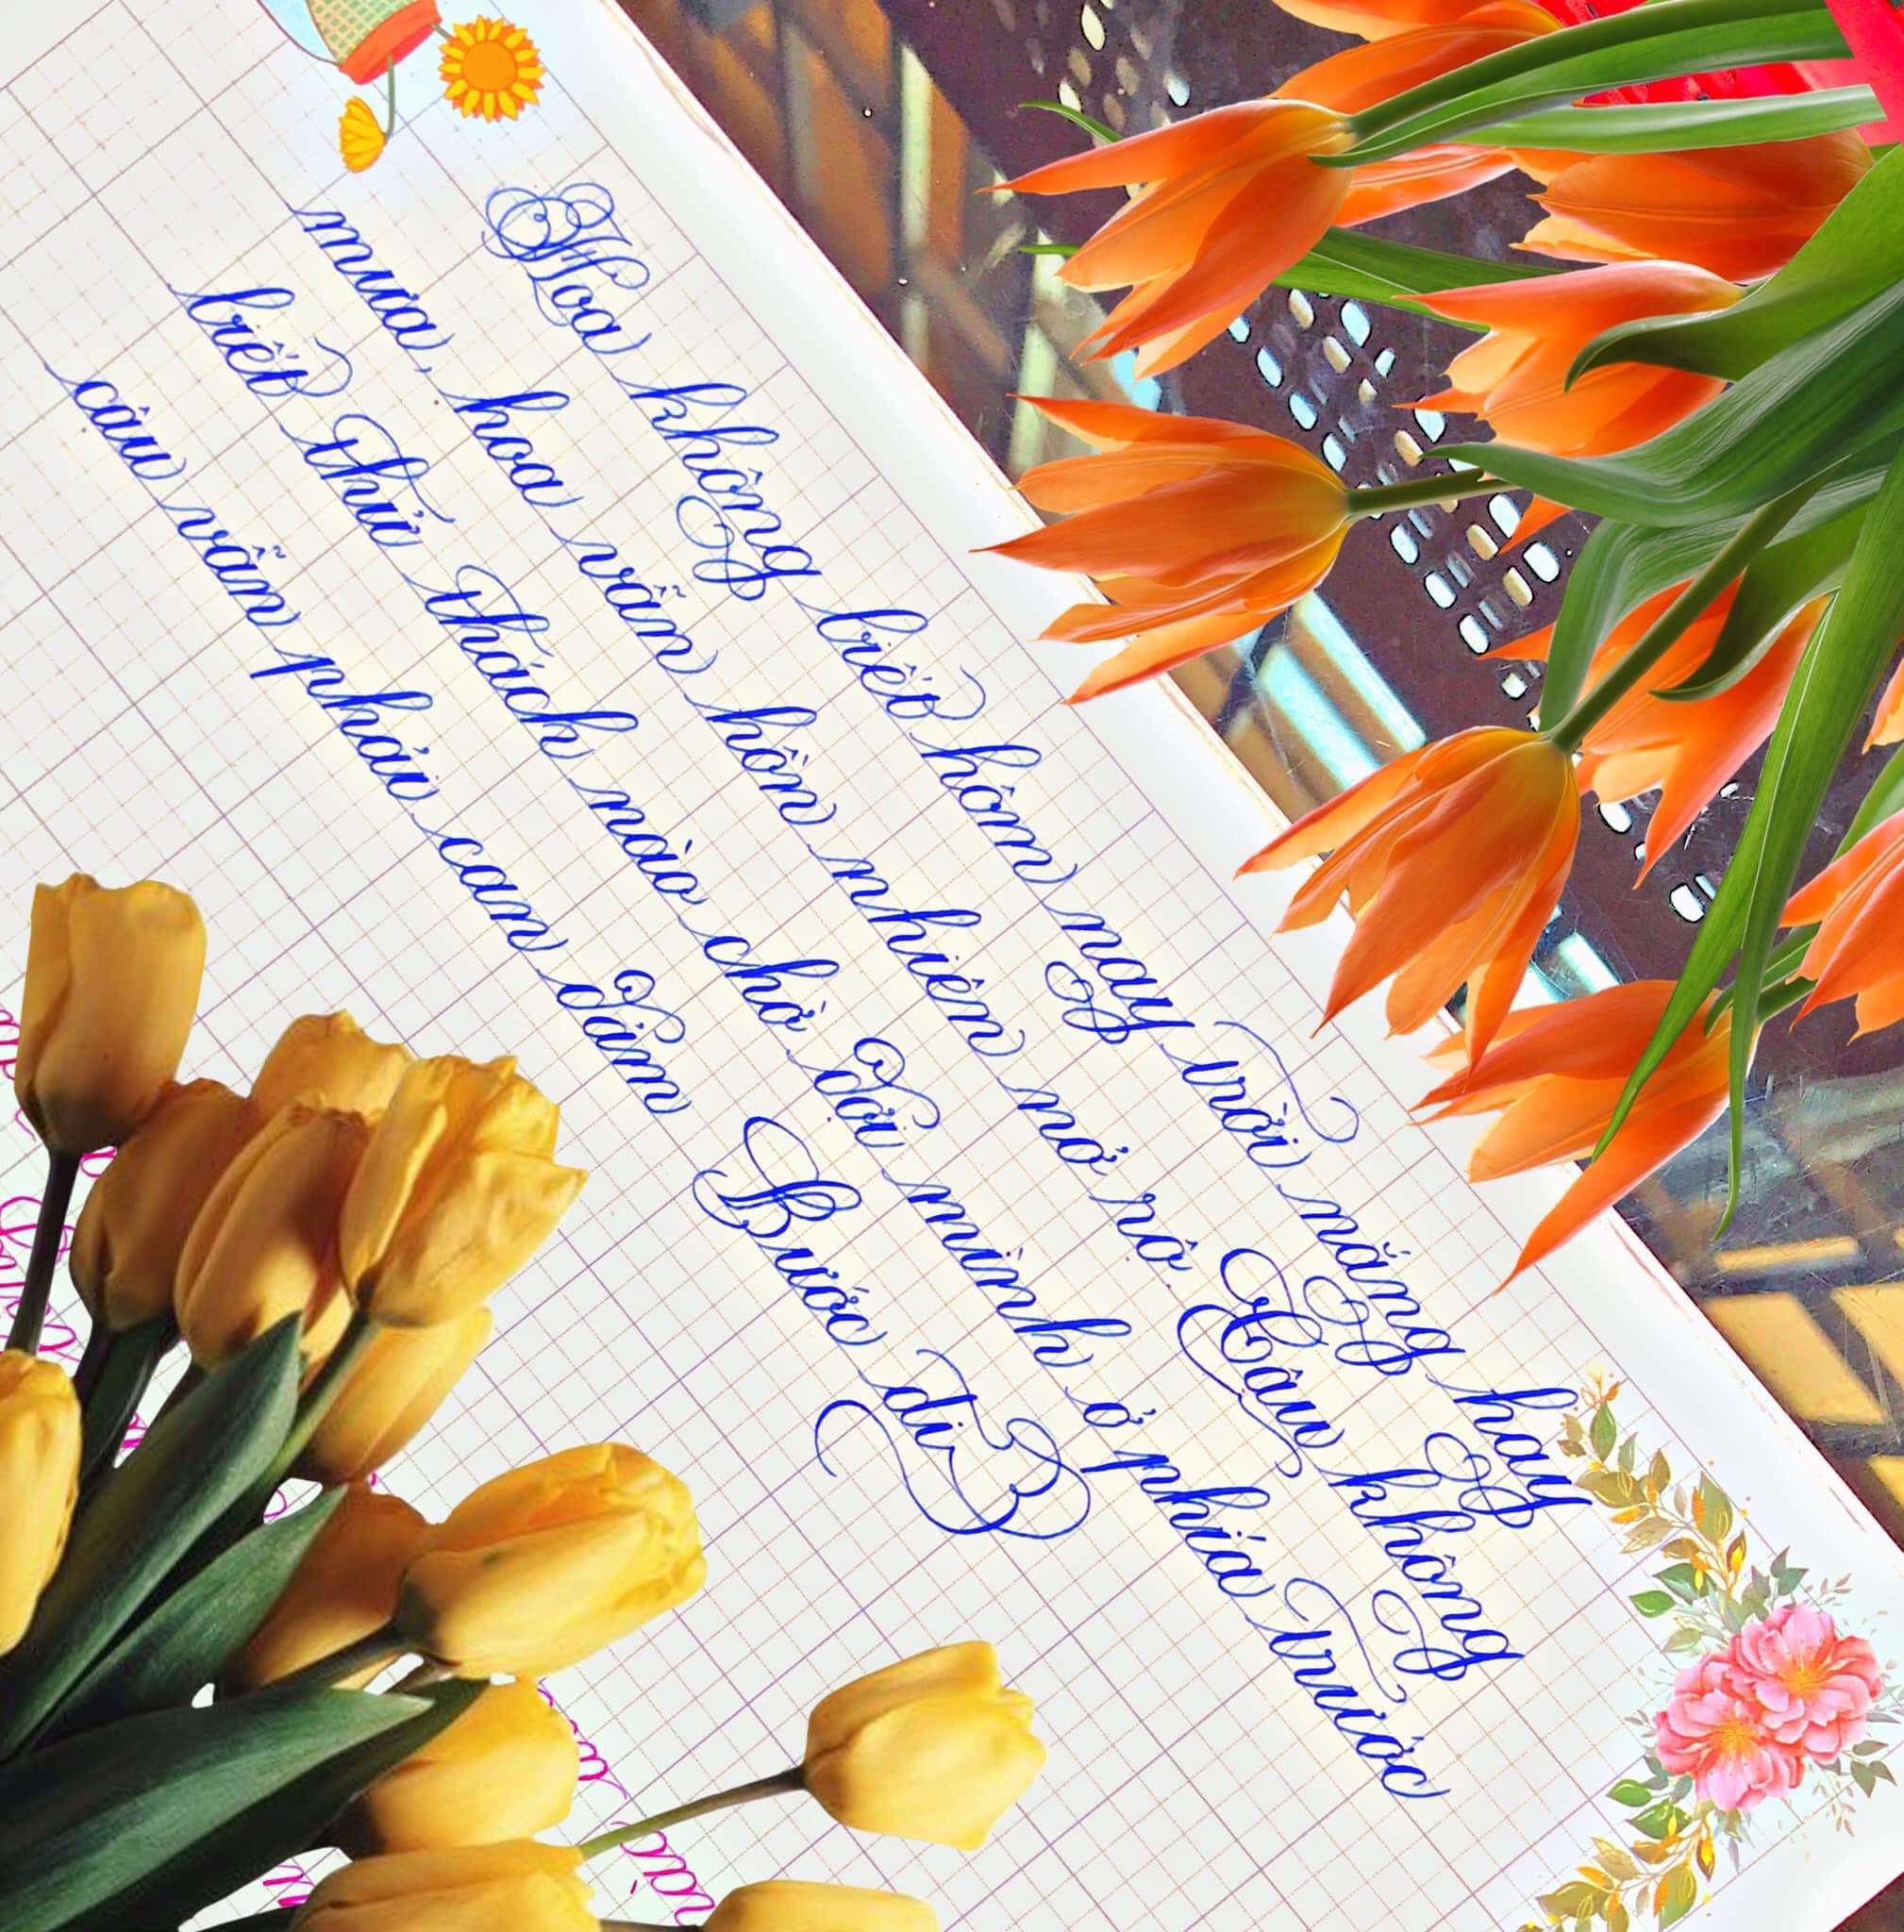 Hoa không biết hôm nay trời nắng hay
mưa, hoa vẫn hồn nhiên nở rộ. Cậu không
biết thử thách nào chờ đợi mình ở phía trước
cậu vẫn phải can đảm Bước đi